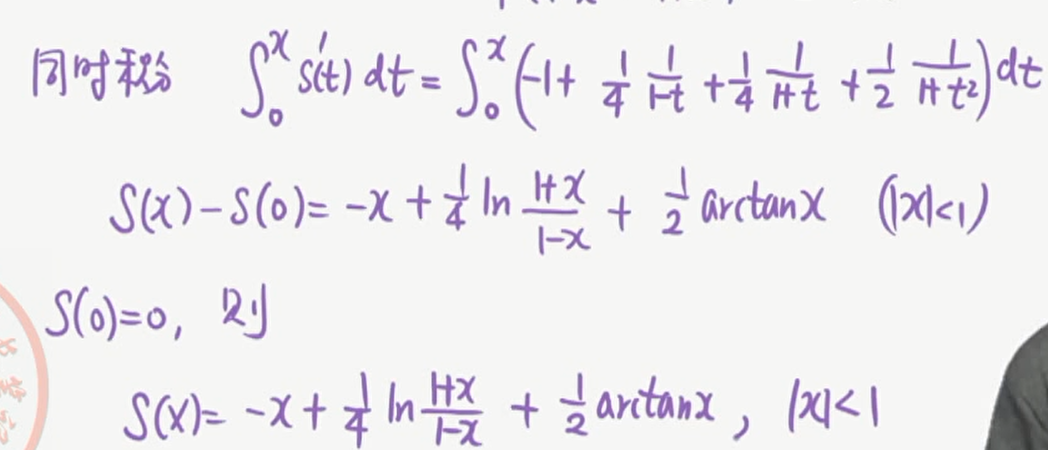 同时积分 ∫₀ˣ S'(t) dt = ∫₀ˣ (-1 + 1/4 1/(1-t) + 1/4 1/(1+t) + 1/2 1/(1+t²)) dt
S(x) - S(0) = -x + 1/4 ln (1+x)/(1-x) + 1/2 arctanx (|x|<1)
S(0)=0, 则
S(x) = -x + 1/4 ln (1+x)/(1-x) + 1/2 arctanx , |x|<1